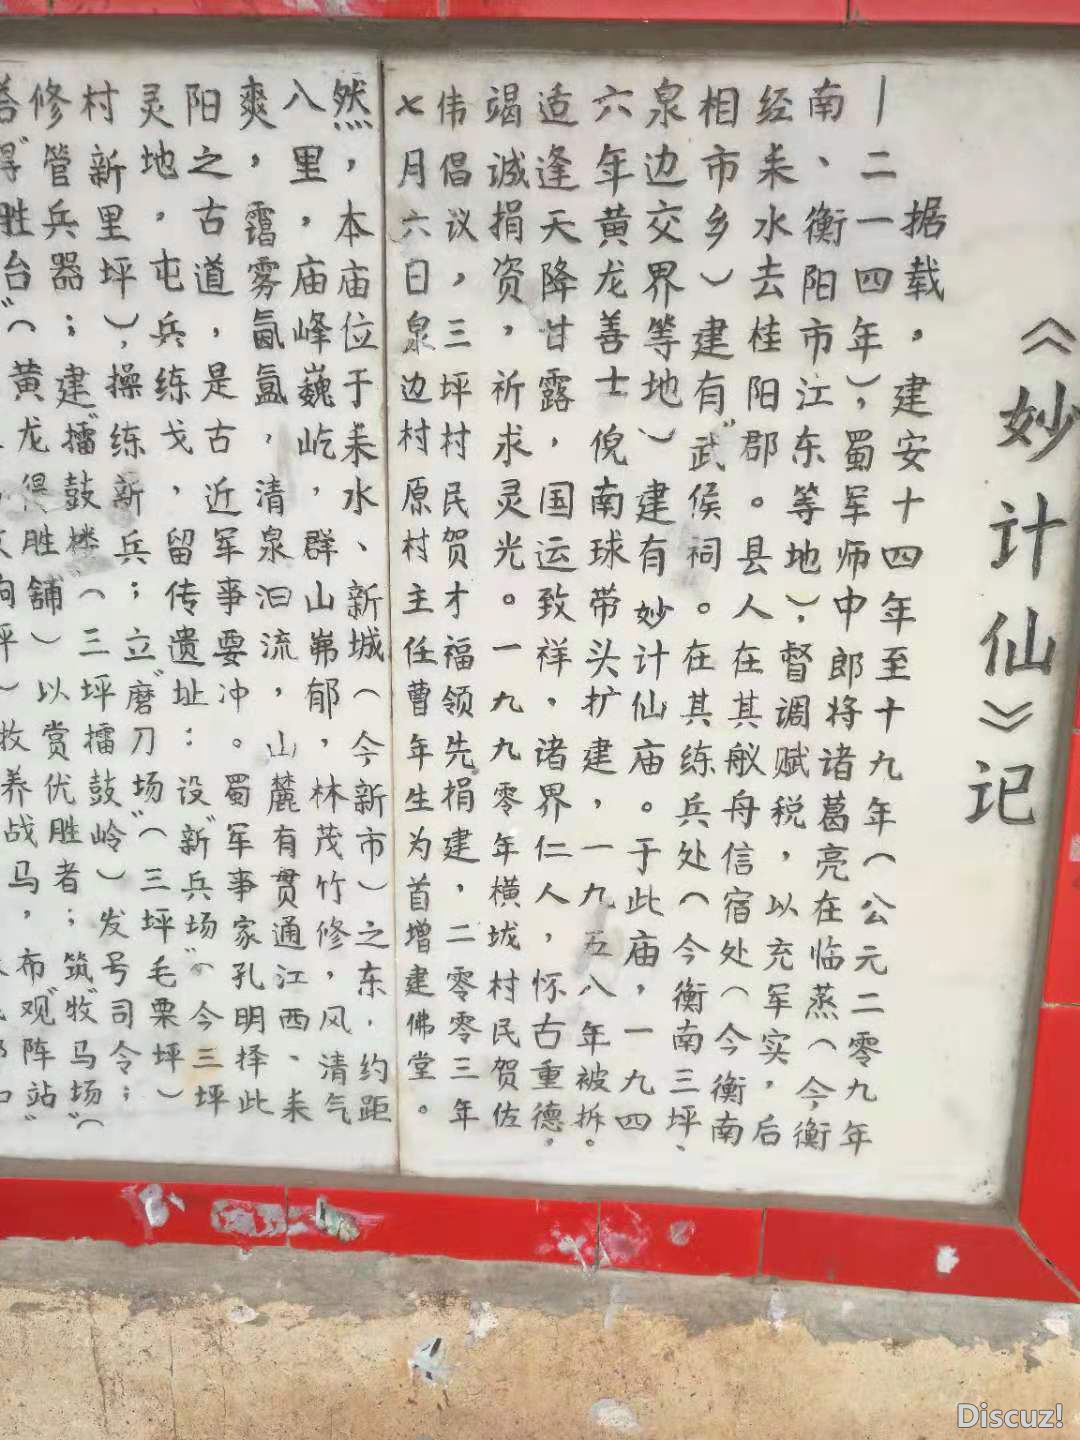 《妙计仙》记
据载，建安十四年至十九年（公元二零九年
—二一四年），蜀军师中郎将诸葛亮在临蒸（今衡
南、衡阳市江东等地），督调赋税，以充军实，后
经耒水去桂阳郡。县人在其舣舟信宿处（今衡南
相市乡）建有“武侯祠。在其练兵处（今衡南三坪、
泉边交界等地）建有妙计仙庙。于此庙，一九四
六年黄龙善士倪南球带头扩建，一九五八年被拆。
适逢天降甘露，国运致祥，诸界仁人，怀古重德，
竭诚捐资，祈求灵光。一九九零年横垅村民贺佐
伟倡议，三坪村民贺才福领先捐建，二零零三年
七月六日泉边村原村主任曹年生为首增建佛堂。
然，本庙位于耒水、新城（今新市）之东，约距
八里，庙峰巍屹，群山岪郁，林茂竹修，风清气
爽，霭雾氤氲，清泉汩流，山麓有贯通江西、耒
阳之古道，是古近军事要冲。蜀军事家孔明择此
灵地，屯兵练戈，留传遗址：设“新兵场”（今三坪
村新里坪），操练新兵；立“磨刀场”（三坪毛栗坪）
修管兵器；建“擂鼓楼”（三坪擂鼓岭）发号司令；
“得胜台”（黄龙得胜铺）以赏优胜者；筑“牧马场”（
坪）牧养战马，布“观阵站”
Discuz!